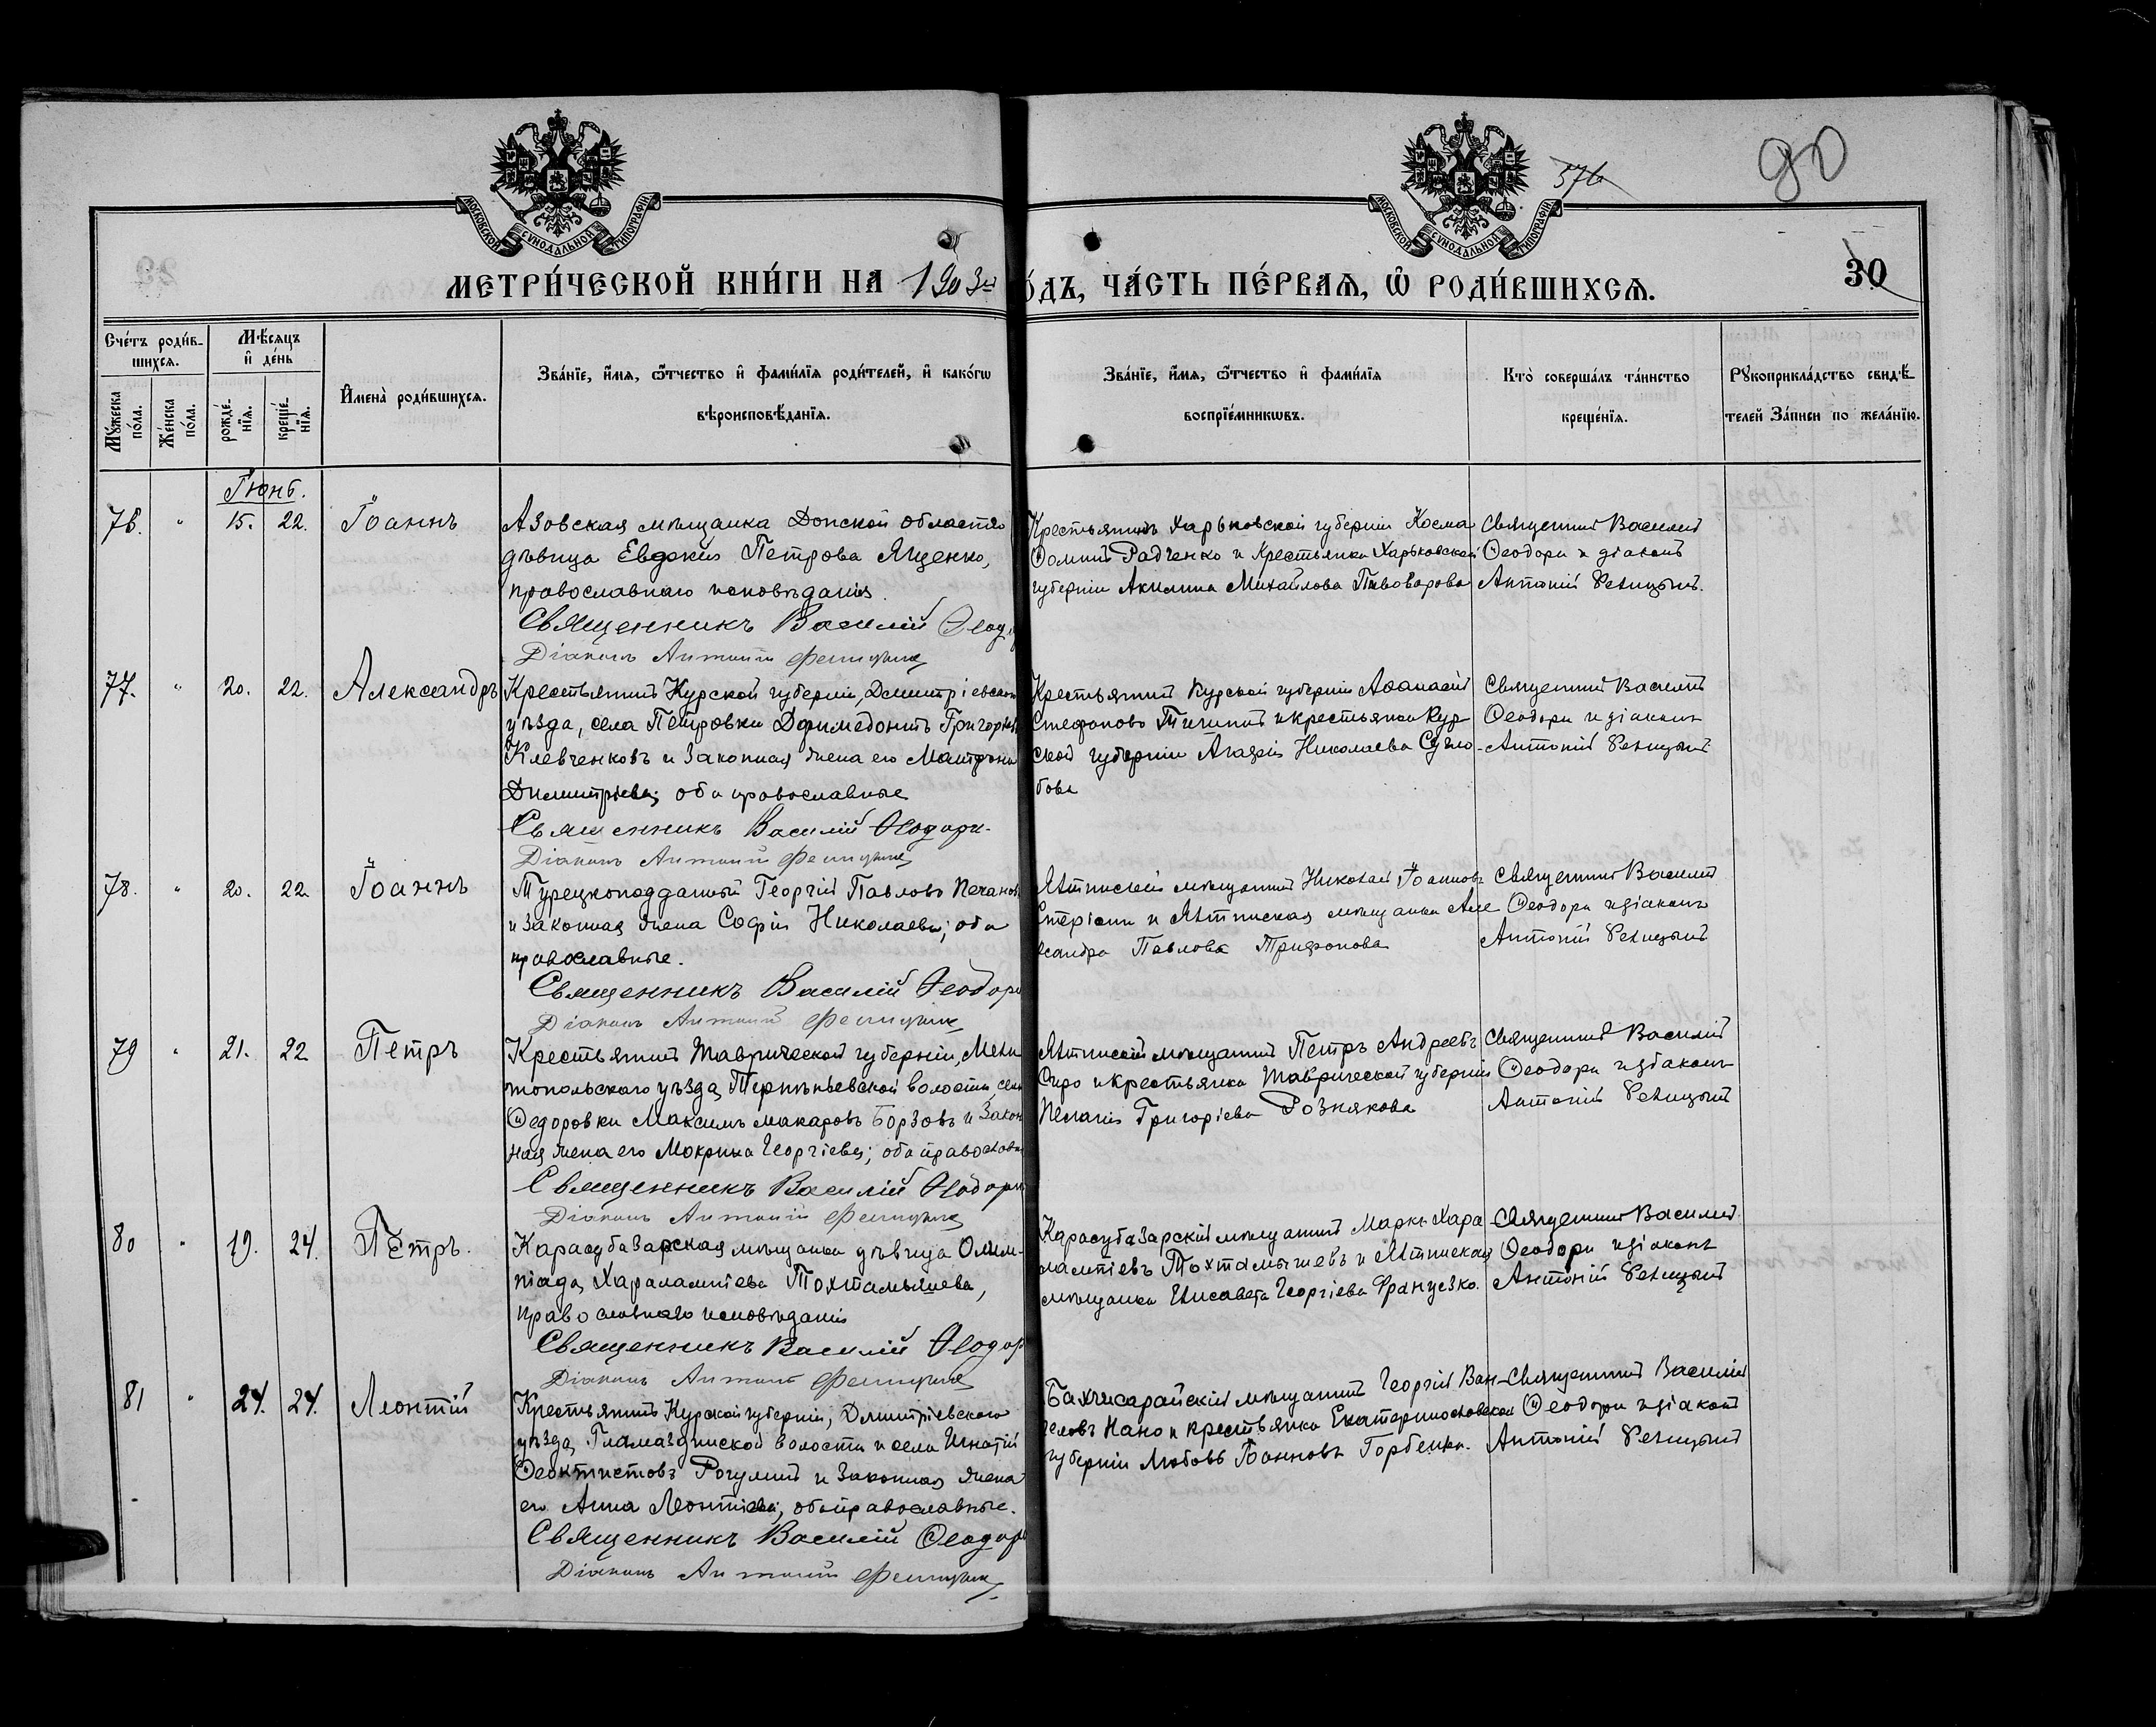 МОСКОВСКОЙ СУНОДАЛЬНОЙ ТИПОГРАФІИ
МОСКОВСКОЙ СУНОДАЛЬНОЙ ТИПОГРАФІИ
576
90
МЕТРИ́ЧЕСКОЙ КНИ́ГИ НА 1903й
О́ДЪ, ЧА́СТЬ ПЕ́РВАѦ, Ѽ РОДИ́ВШИХСѦ.
30
Сче́тъ роди́в-
шихсѧ.
Мѣ́сѧцъ
и҆ де́нь
Мꙋ́жеска
по́ла.
Же́нска
по́ла.
рожде́-
нїѧ.
креще́-
нїѧ.
И҆мена̀ роди́вшихсѧ.
Зва́нїе, и҆́мѧ, ѻ҆́тчество и҆ фами́лїѧ роди́телей, и҆ како́гѡ
вѣроисповѣ́данїѧ.
Зва́нїе, и҆́мѧ, ѻ҆́тчество и҆ фами́лїѧ
воспрїе́мникѡвъ.
Кто̀ соверша́лъ та́инство
креще́нїѧ.
Рꙋкоприкла́дство свидѣ́-
телей За́писи по жела́нїю.
Іюнь.
76. " 15. 22. Іоаннъ
Азовская мѣщанка Донской области
дѣвица Евдокія Петрова Яценко,
православнаго исповѣданія.
Священникъ Василій Ѳеод
Діаконъ Антоній
Крестьянинъ Харьковской губерніи Косма
Ѳоминъ Радченко и крестьянка Харьковской
губерніи Акилина Михайлова Пивоварова
Священникъ Василій
Ѳеодори и діаконъ
Антоній
77. " 20. 22. Александръ
Крестьянинъ Курской губерніи, Димитріевскаго
уѣзда, села Петровки Доримедонтъ Григорьевъ
Клевченковъ и законная жена его Матрона
Димитріева; оба православные
Священникъ Василій Ѳеодори.
Діаконъ Антоній
Крестьянинъ Курской губерніи Аѳанасій
Стефановъ и крестьянка Кур-
ской губерніи Николаева
бова
Священникъ Василій
Ѳеодори и діаконъ
Антоній
78. " 20. 22 Іоаннъ
Турецкоподданный Георгій Павловъ
и законная жена Софія Николаева; оба
православные.
Священникъ Василій Ѳеодори
Діаконъ Антоній
Ялтинскій мѣщанинъ Николай Іоанновъ
и Ялтинская мѣщанка Алек
сандра Павлова Трифонова
Священникъ Василій
Ѳеодори и діаконъ
Антоній
79 " 21. 22 Петръ
Крестьянинъ Таврической губерніи, Мели
топольскаго уѣзда, Терпѣньевской волости, села
Ѳедоровки Максимъ Макаровъ Борзовъ и закон
ная жена его Мокрина Георгіева; оба православн
Священникъ Василій Ѳеодори
Діаконъ Антоній
Ялтинскій мѣщанинъ Петръ Андреевъ
Спиро и крестьянка Таврической губерніи
Пелагія Григоріева Рознякова
Священникъ Василій
Ѳеодори и діаконъ
Антоній
80 " 19. 24. Петръ.
Карасубазарская мѣщанка дѣвица Олим-
піада Харалампіева Тохтамышева,
православнаго исповѣданія
Священникъ Василій Ѳеодор
Діаконъ Антоній
Карасубазарскій мѣщанинъ Маркъ Хара
лампіевъ Тохтамышевъ и Ялтинская
мѣщанка Елисавета Георгіева Француезко.
Священникъ Василій
Ѳеодори и діаконъ
Антоній
81 " 24. 24. Леонтій
Крестьянинъ Курской губерніи, Димитріевскаго
уѣзда, Гламаздинской волости и села Игнатій
Ѳеоктистовъ и законная жена
его Анна Леонтіева; оба православные.
Священникъ Василій Ѳеодори
Діаконъ Антоній
Бахчисарайскій мѣщанинъ Георгій Ван-
геловъ Нано и крестьянка Екатеринославской
губерніи Любовь Іоаннова Горбенко.
Священникъ Василій
Ѳеодори и діаконъ
Антоній